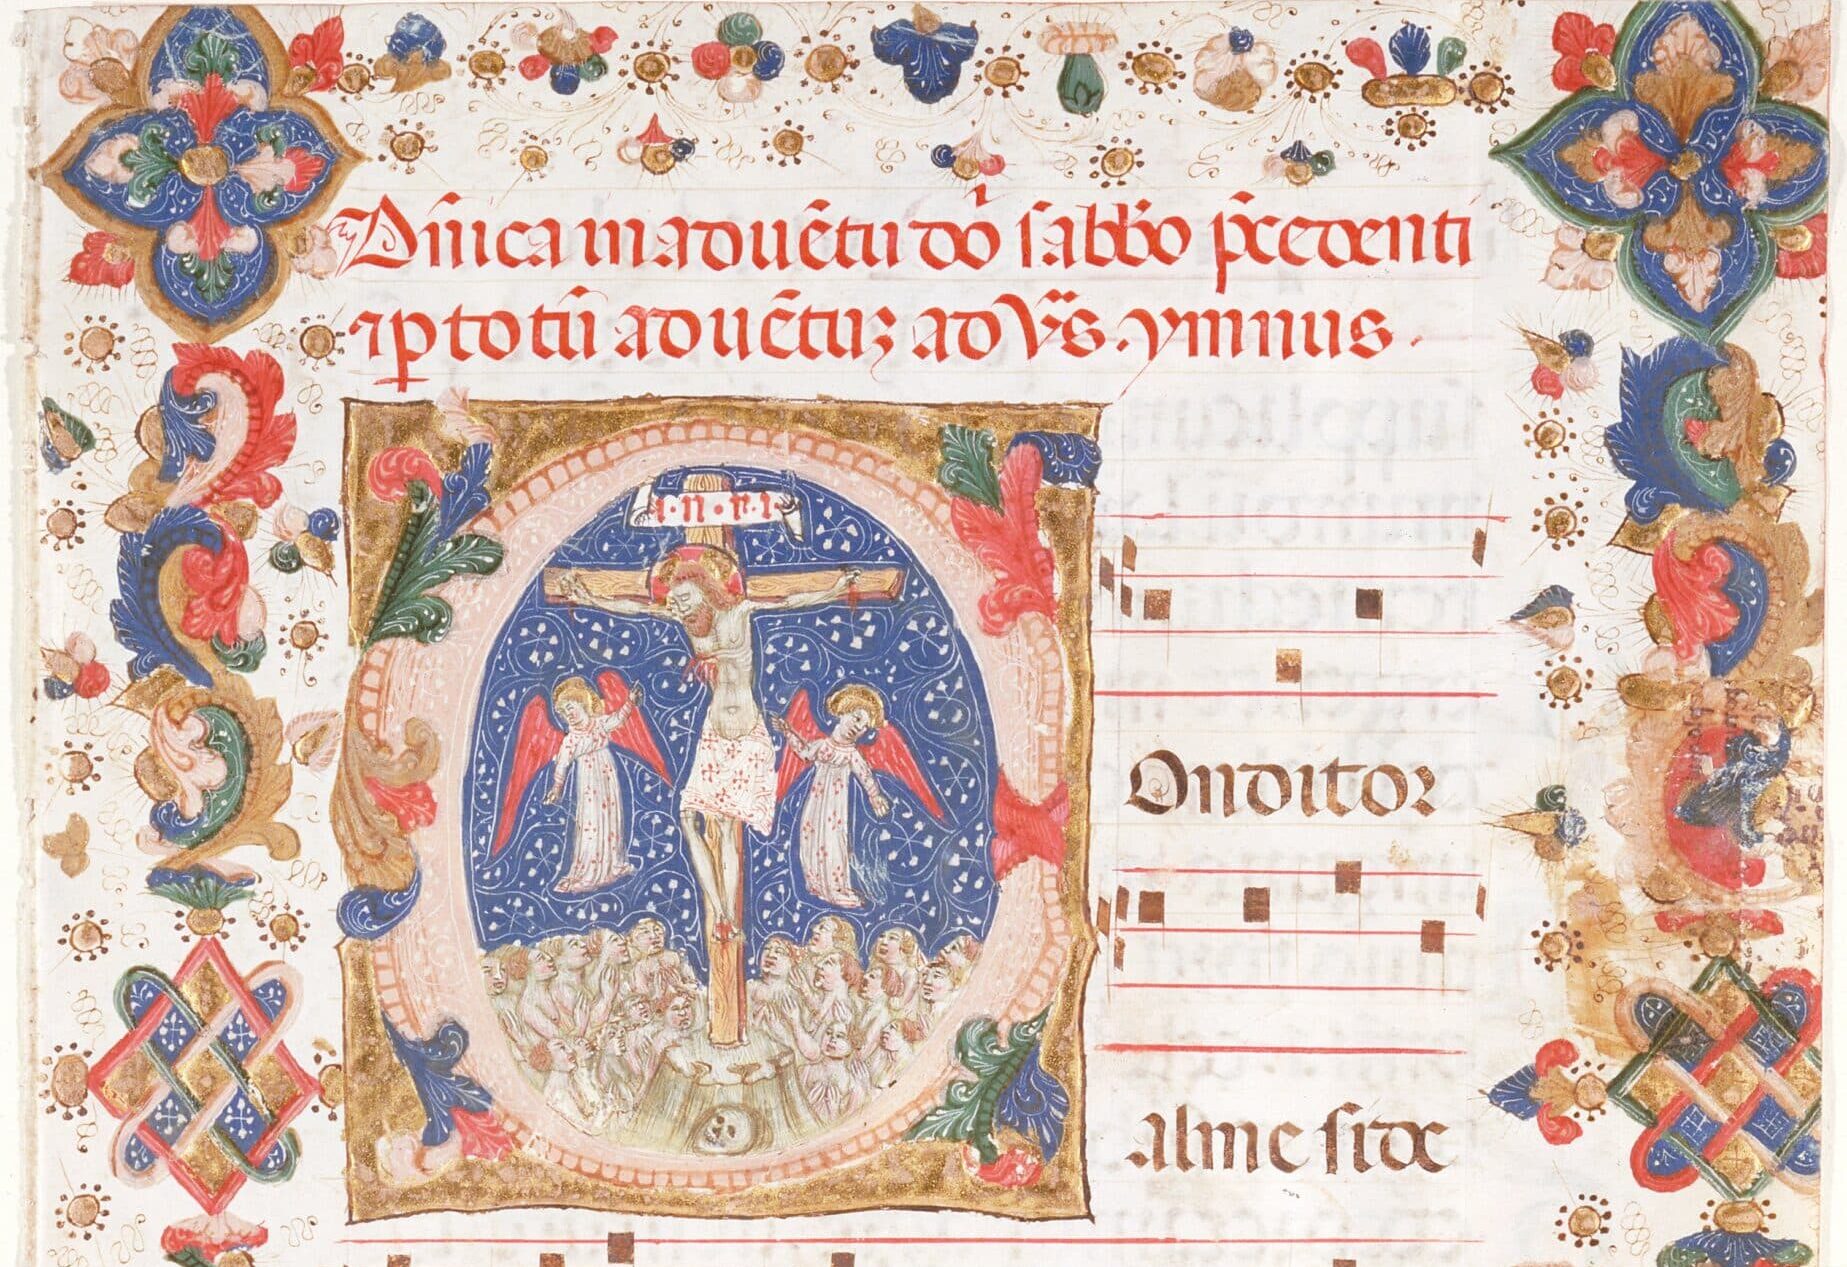 Dn̄ica in aduētu dō sabb̄o p̄cedenti
⁊ p totū aduētuꝫ ad vs̄. ymnus.
I·N·R·I·
Onditor
alme side